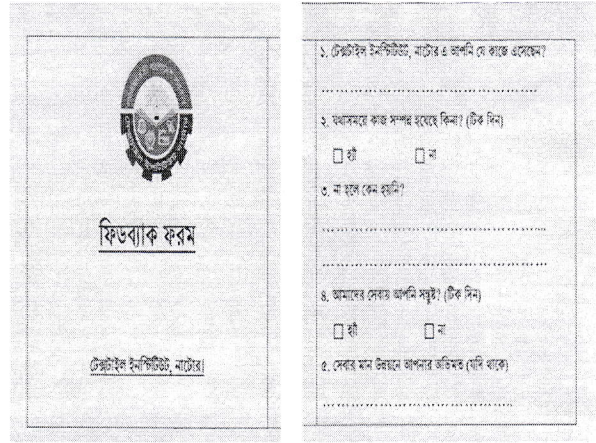 ফিডব্যাক ফরম
টেক্সটাইল ইনস্টিটিউট, নাটোর।
১. টেক্সটাইল ইনস্টিটিউট, নাটোর এ আপনি যে কাজে এসেছেন?
২. যথাসময়ে কাজ সম্পন্ন হয়েছে কিনা? (টিক দিন)
হ্যাঁ না
৩. না হলে কেন হয়নি?
৪. আমাদের সেবায় আপনি সন্তুষ্ট? (টিক দিন)
হ্যাঁ না
৫. সেবার মান উন্নয়নে আপনার অভিমত (যদি থাকে)